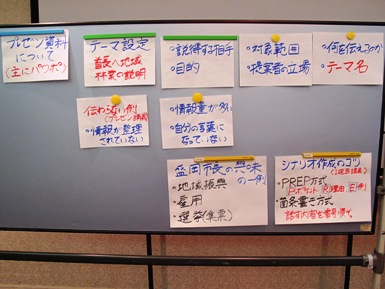 プレゼン資料
について
(主にパワポ)
テーマ設定
首長へ地域
林業の説明
・説得する相手
・目的
・対象範囲
・提案者の立場
・何を伝えるのか
・テーマ名
伝わらない例
(プレゼン講義)
・情報が整理
されていない
・情報量が多い
・自分の言葉に
なっていない
盛岡市長の興味
の一例
・地域振興
・雇用
・選挙(集票)
シナリオ作成のコツ
・PREP方式
P:ポイント R:理由 E:例
・箇条書き方式
話す内容を番号順で。